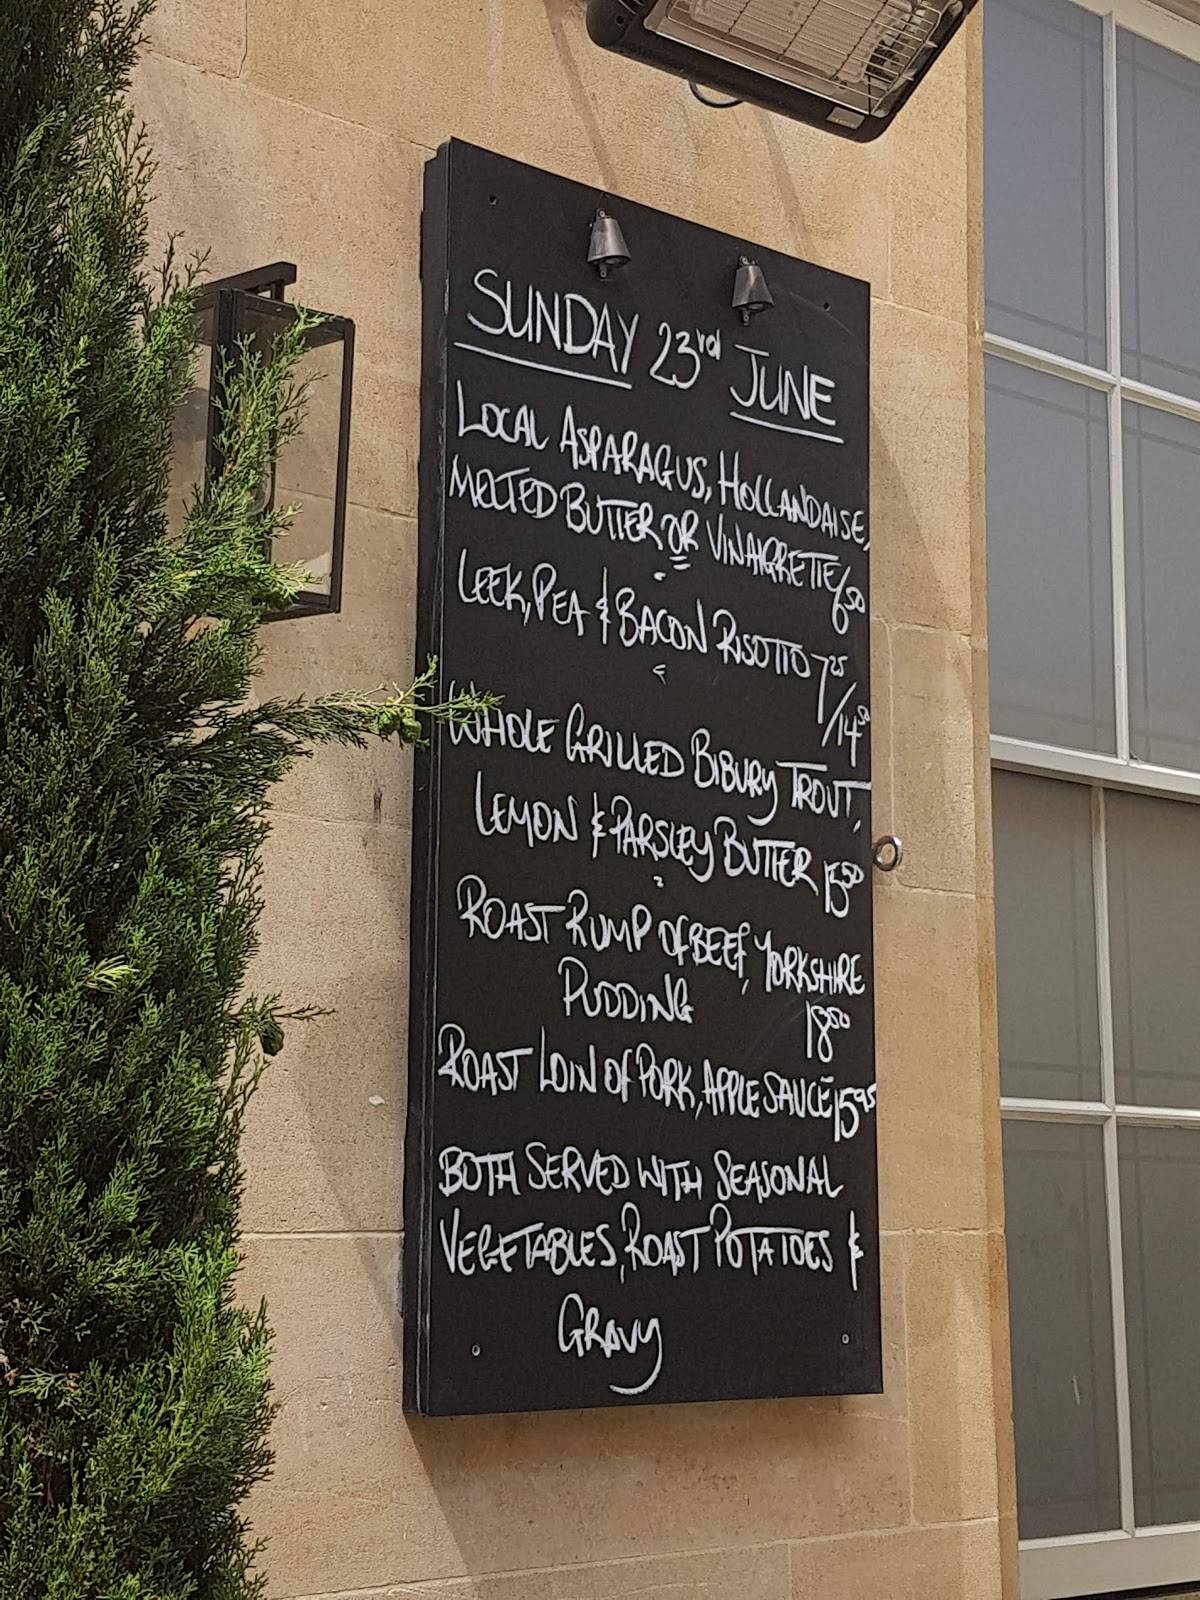 SUNDAY 23rd JUNE
LOCAL ASPARAGUS, HOLLANDAISE,
MELTED BUTTER OR VINAIGRETTE/650
LEEK, PEA & BACON RISOTTO 725
/1450
WHOLE GRILLED BIBURY TROUT,
LEMON & PARSLEY BUTTER 1550
ROAST RUMP OF BEEF, YORKSHIRE
PUDDING 1850
ROAST LOIN OF PORK, APPLE SAUCE 1595
BOTH SERVED WITH SEASONAL
VEGETABLES, ROAST POTATOES &
GRAVY